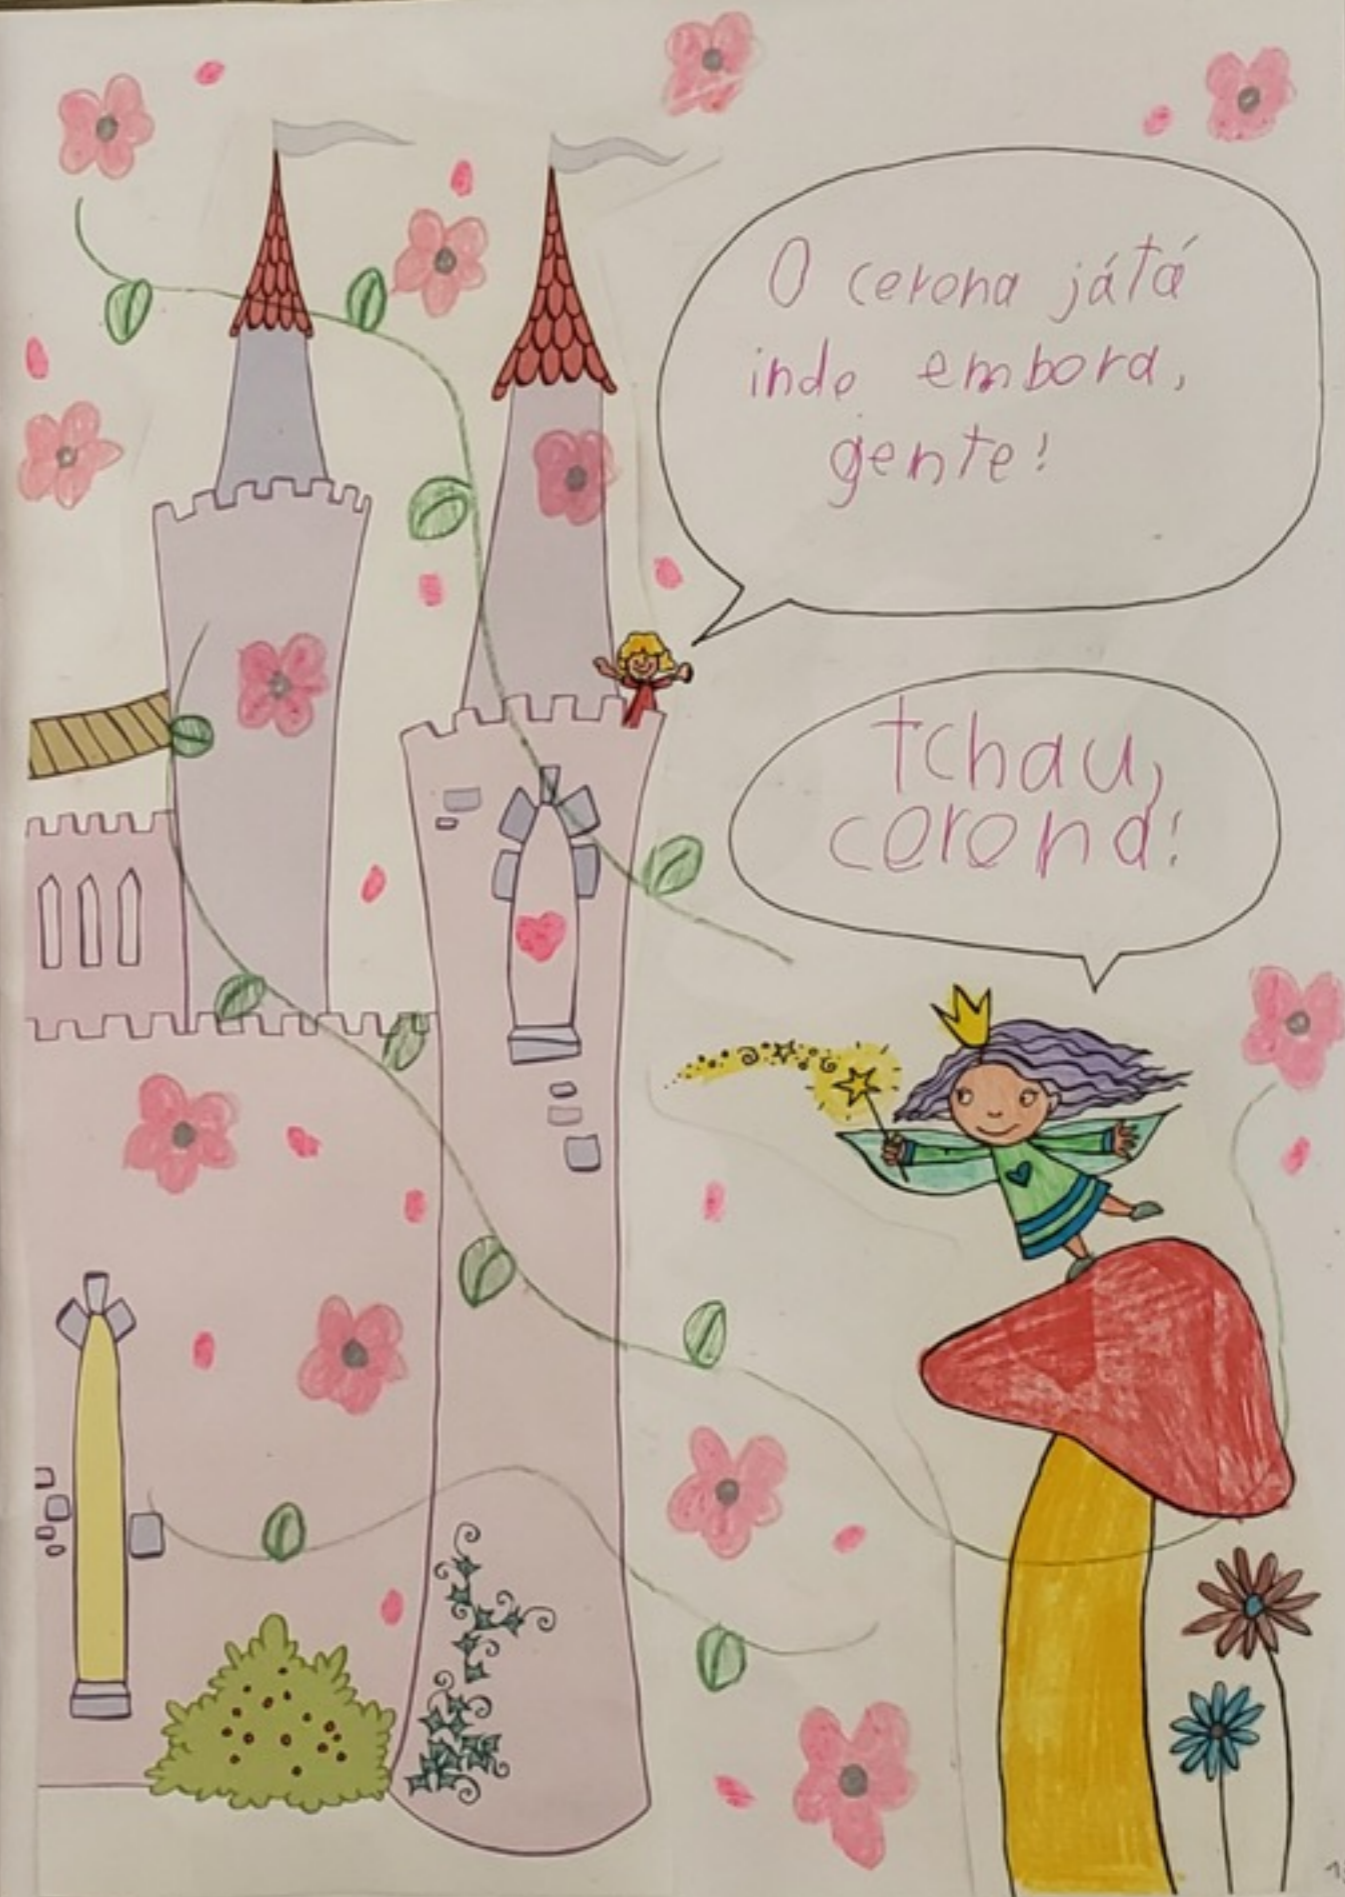 O cerona játá
indo embora,
gente!
tchau,
cerona!